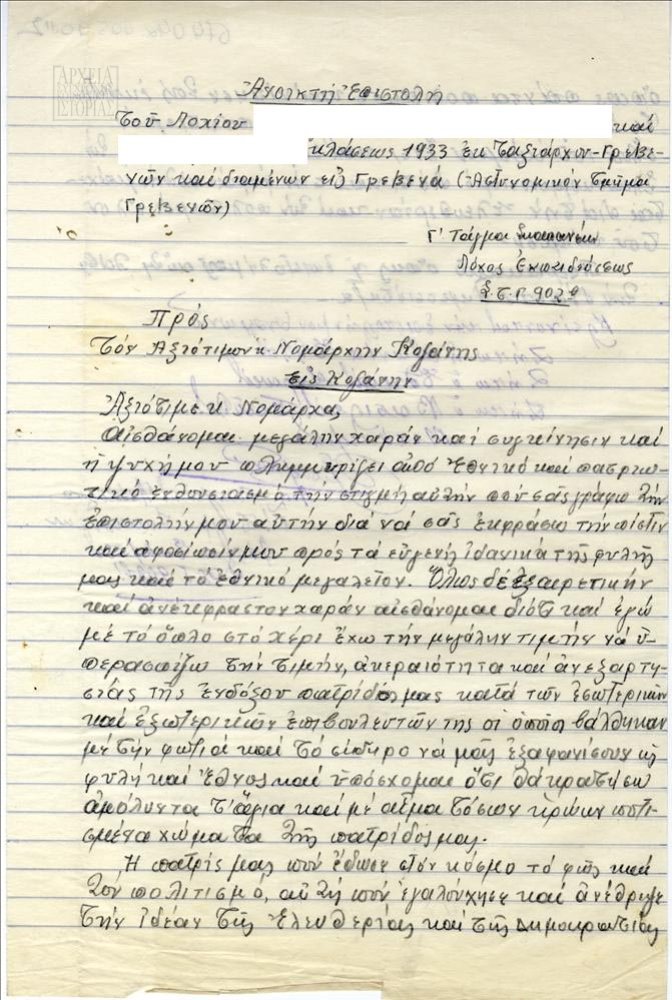 ΑΡΧΕΙΑ
ΙΣΤΟΡΙΑΣ
Ἀνοικτὴ Ἐπιστολὴ
Τοῦ Λοχίου καὶ
κλάσεως 1933 ἐκ Ταξιάρχου-Γρεβε-
νῶν καὶ διαμένων εἰς Γρεβενά (Ἀστυνομικόν Τμῆμα
Γρεβενῶν)
Γ' Τάγμα Σκαπανέων
Λόχος Ἐκπαιδεύσεως
Σ.Τ.Γ. 902α
Πρός
Τόν Ἀξιότιμον κ. Νομάρχην Κοζάνης
Εἰς Κοζάνην
Ἀξιότιμε κ. Νομάρχα,
Αἰσθάνομαι μεγάλην χαράν καὶ συγκίνησιν καὶ
ἡ ψυχή μου πλημμυρίζει ἀπό ἐθνικό καὶ πατριω-
τικό ἐνθουσιασμό τήν στιγμή αὐτήν πού σᾶς γράφω τήν
ἐπιστολήν μου αὐτήν διά νά σᾶς ἐκφράσω τήν πίστιν
καὶ ἀφοσίωσίν μου πρός τά εὐγενῆ ἰδανικά τῆς φυλῆς
μας καὶ τό ἐθνικό μεγαλεῖον. Ὅλως δέ ἐξαιρετικήν
καὶ ἀνέκφραστον χαράν αἰσθάνομαι διότι καὶ ἐγώ
μέ τό ὅπλο στό χέρι ἔχω τήν μεγάλην τιμήν νά ὑ-
περασπίζω τήν τιμήν, ἀκεραιότητα καὶ ἀνεξαρτη-
σίας τῆς ἐνδόξου πατρίδος μας κατά τῶν ἐσωτερικῶν
καὶ ἐξωτερικῶν ἐπιβουλευτῶν της οἱ ὁποῖοι βάλθηκαν
μέ τήν φωτιά καὶ τό σίδερο νά μᾶς ἐξαφανίσουν ὡς
φυλή καὶ Ἔθνος καὶ ὑπόσχομαι ὅτι θά κρατήσω
ἀμόλυντα τ' ἅγια καὶ μέ αἷμα τόσων ἡρώων ποτι-
σμένα χώματα τῆς πατρίδος μας.
Ἡ πατρίς μας πού ἔδωσε στόν κόσμο τό φῶς καὶ
τόν πολιτισμό, αὐτή πού ἐγαλούχησε καὶ ἀνέθρεψε
τήν ἰδέαν τῆς Ἐλευθερίας καὶ τῆς Δημοκρατίας